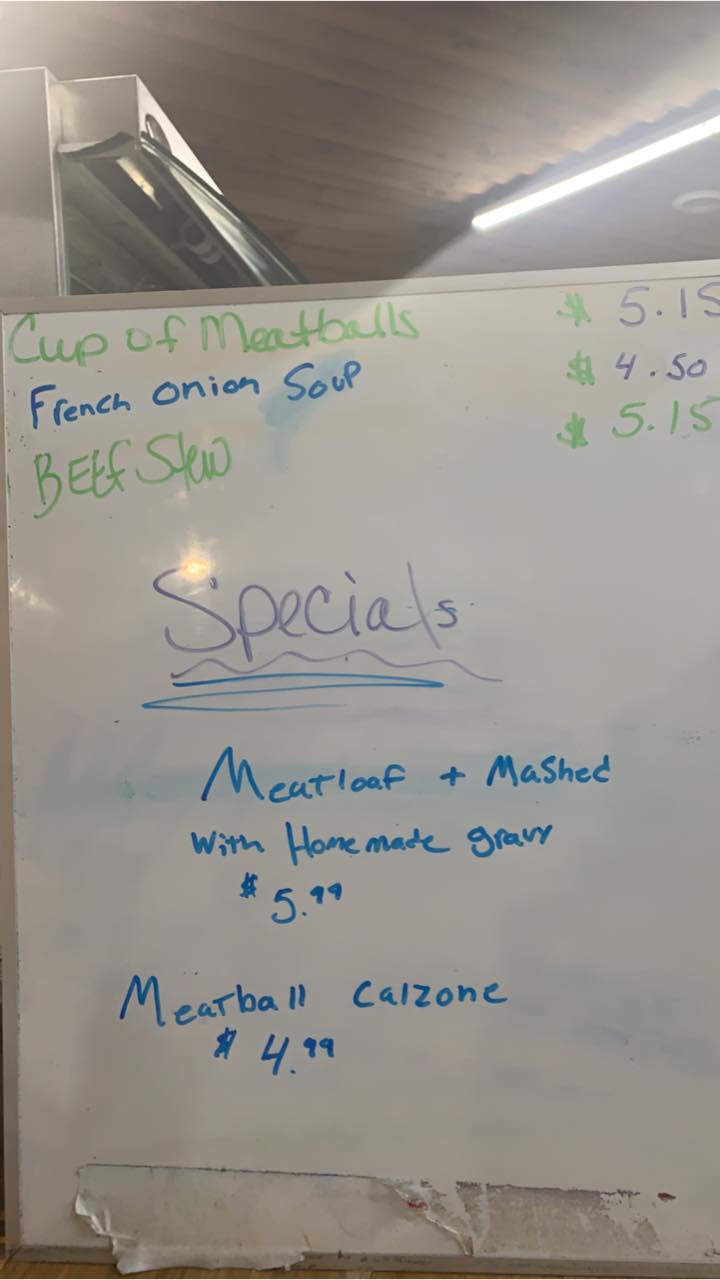 Cup of Meatballs $ 5.15
French onion Soup $ 4.50
BEEf Stew $ 5.15
Specials
Meatloaf + Mashed
With Homemade gravy
$ 5.99
Meatball Calzone
$ 4.99